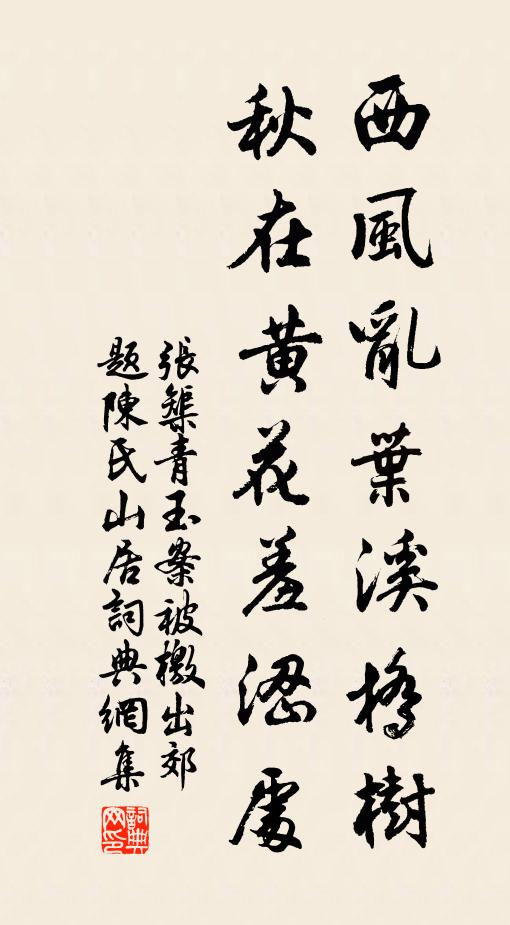 西風亂葉溪橋樹
秋在黃花羞澀處
張榘青玉案被檄出郊
題陳氏山居詞典網集
詞典網印